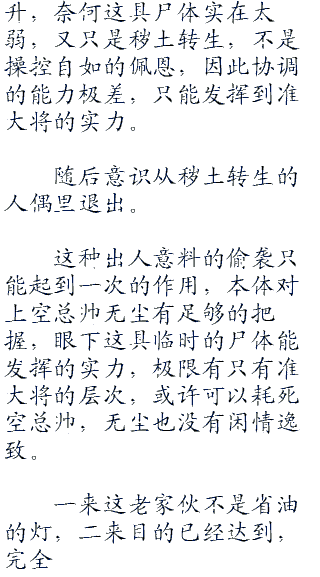 升，奈何这具尸体实在太
弱，又只是秽土转生，不是
操控自如的佩恩，因此协调
的能力极差，只能发挥到准
大将的实力。
随后意识从秽土转生的
人偶里退出。
这种出人意料的偷袭只
能起到一次的作用，本体对
上空总帅无尘有足够的把
握，眼下这具临时的尸体能
发挥的实力，极限有只有准
大将的层次，或许可以耗死
空总帅，无尘也没有闲情逸
致。
一来这老家伙不是省油
的灯，二来目的已经达到，
完全